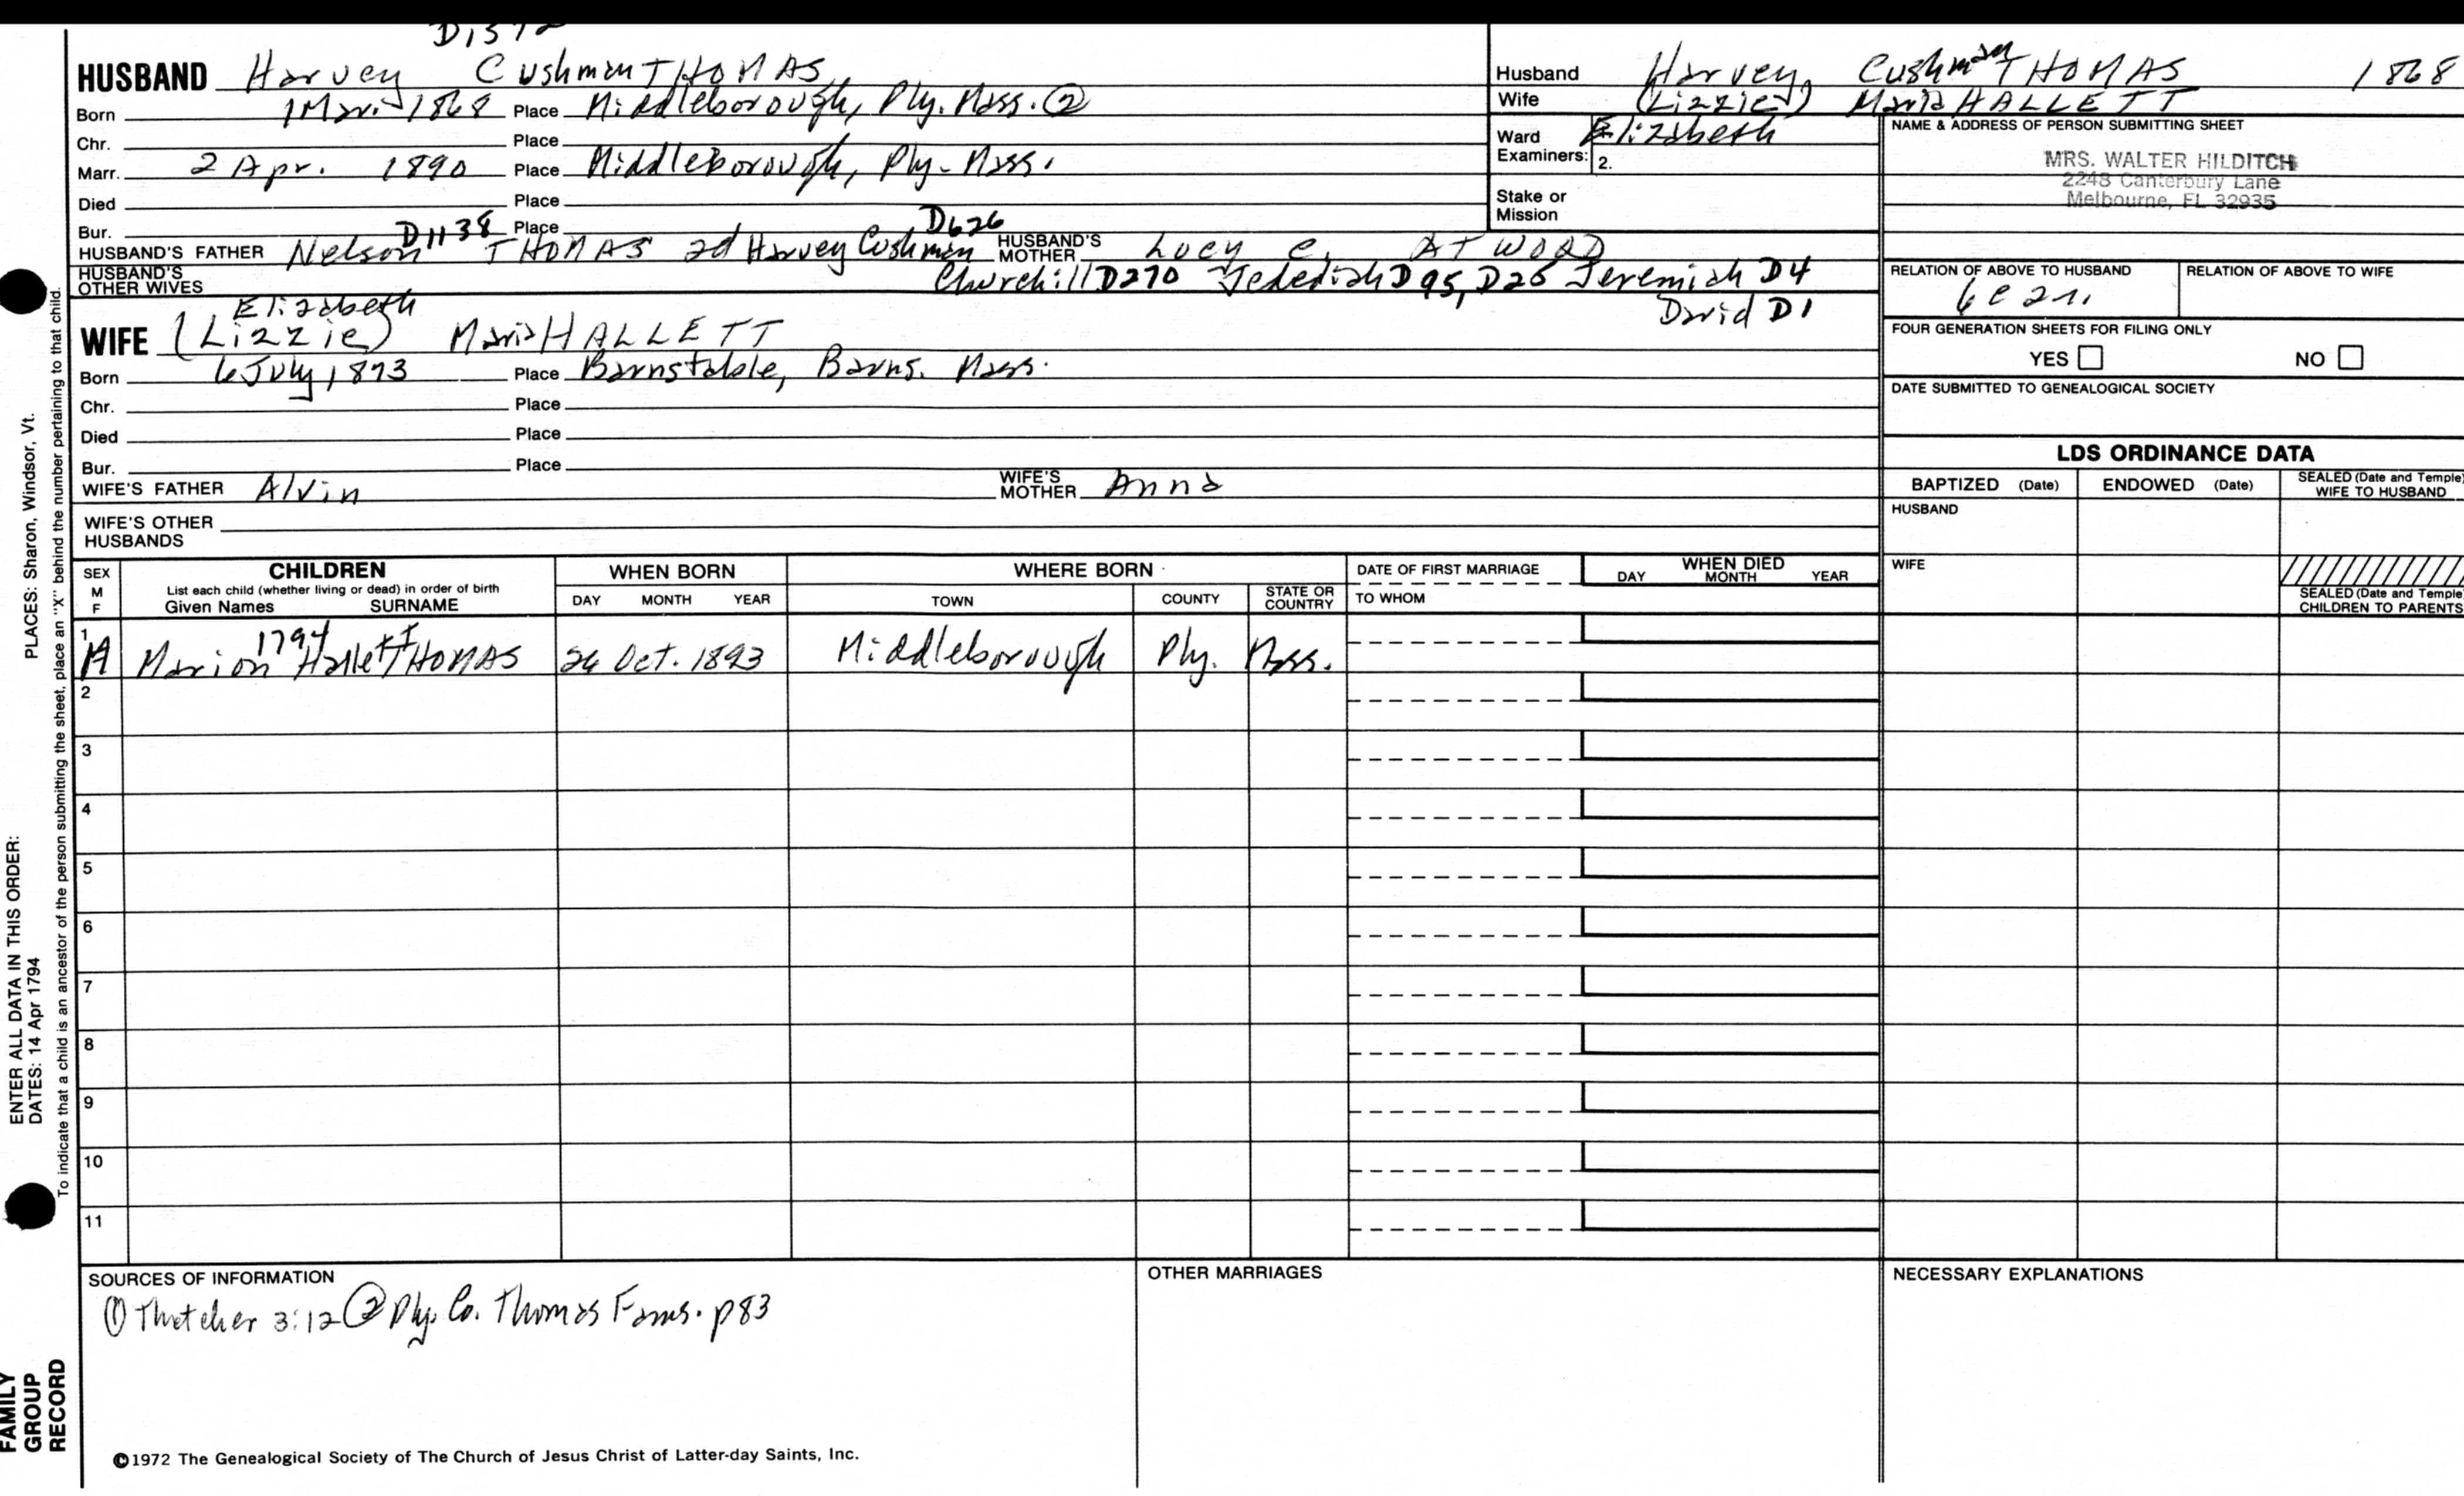 D1372
HUSBAND Harvey Cushman THOMAS
Born 1 Mar. 1868 Place Middleborough, Ply. Mass. ②
Chr. Place
Marr. 2 Apr. 1890 Place Middleborough, Ply. Mass.
Died Place
Bur. Place
D1138 D626
HUSBAND'S FATHER Nelson THOMAS 2d Harvey Cushman HUSBAND'S MOTHER Lucy C. ATWOOD
HUSBAND'S OTHER WIVES Churchill D270 Jedediah D95, D25 Jeremiah D4
David D1
Elizabeth
WIFE (Lizzie) Maria HALLETT
Born 6 July 1873 Place Barnstable, Barns. Mass.
Chr. Place
Died Place
Bur. Place
WIFE'S FATHER Alvin WIFE'S MOTHER Anna
WIFE'S OTHER HUSBANDS
Husband Harvey Cushman THOMAS 1868
Wife (Lizzie) Maria HALLETT
Elizabeth
Ward
Examiners: 2.
Stake or
Mission
NAME & ADDRESS OF PERSON SUBMITTING SHEET
MRS. WALTER HILDITCH
2248 Canterbury Lane
Melbourne, FL 32935
RELATION OF ABOVE TO HUSBAND RELATION OF ABOVE TO WIFE
FOUR GENERATION SHEETS FOR FILING ONLY
YES NO
DATE SUBMITTED TO GENEALOGICAL SOCIETY
LDS ORDINANCE DATA
BAPTIZED (Date) ENDOWED (Date) SEALED (Date and Temple) WIFE TO HUSBAND
HUSBAND
WIFE
SEALED (Date and Temple) CHILDREN TO PARENTS
SEX M F
CHILDREN
List each child (whether living or dead) in order of birth
Given Names SURNAME
WHEN BORN
DAY MONTH YEAR
WHERE BORN
TOWN COUNTY STATE OR COUNTRY
DATE OF FIRST MARRIAGE
TO WHOM
WHEN DIED
DAY MONTH YEAR
1794
1 Marion Hallett THOMAS 24 Oct. 1893 Middleborough Ply. Mass.
2
3
4
5
6
7
8
9
10
11
SOURCES OF INFORMATION
① Thatcher 3:12 ② Ply. Co. Thomas Fams. p83
OTHER MARRIAGES
NECESSARY EXPLANATIONS
©1972 The Genealogical Society of The Church of Jesus Christ of Latter-day Saints, Inc.
ENTER ALL DATA IN THIS ORDER:
DATES: 14 Apr 1794 PLACES: Sharon, Windsor, Vt.
To indicate that a child is an ancestor of the person submitting the sheet, place an "X" behind the number pertaining to that child.
FAMILY
GROUP
RECORD